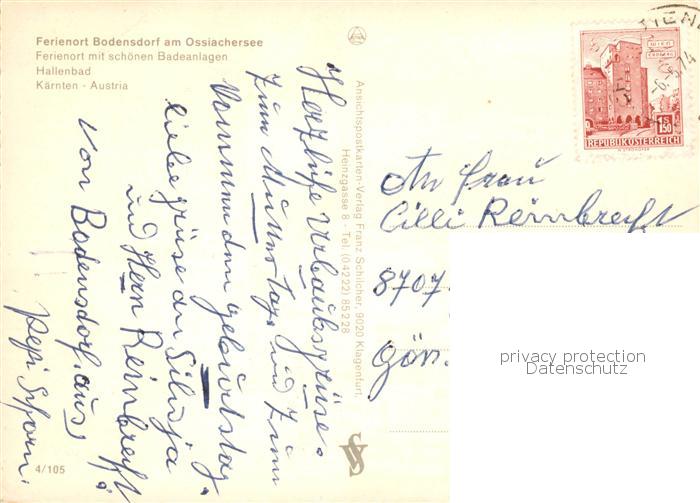 Ferienort Bodensdorf am Ossiachersee
Ferienort mit schönen Badeanlagen
Hallenbad
Kärnten - Austria
Herzliche Urlaubsgrüse.
zum Muttertag. und zum
kommenden geburtstag.
liebe grüse an Silvja
und Herrn Reinbrecht
von Bodensdorf. aus,
Pepi
4/105
Ansichtspostkarten-Verlag Franz Schilcher, 9020 Klagenfurt,
Heinzgasse 8 - Tel. (04222) 85228
WIEN
ERDBERG
1S50
REPUBLIK ÖSTERREICH
-6.5.74
An Frau
Cilli Reinbrecht
8707.
Göss.
privacy protection
Datenschutz